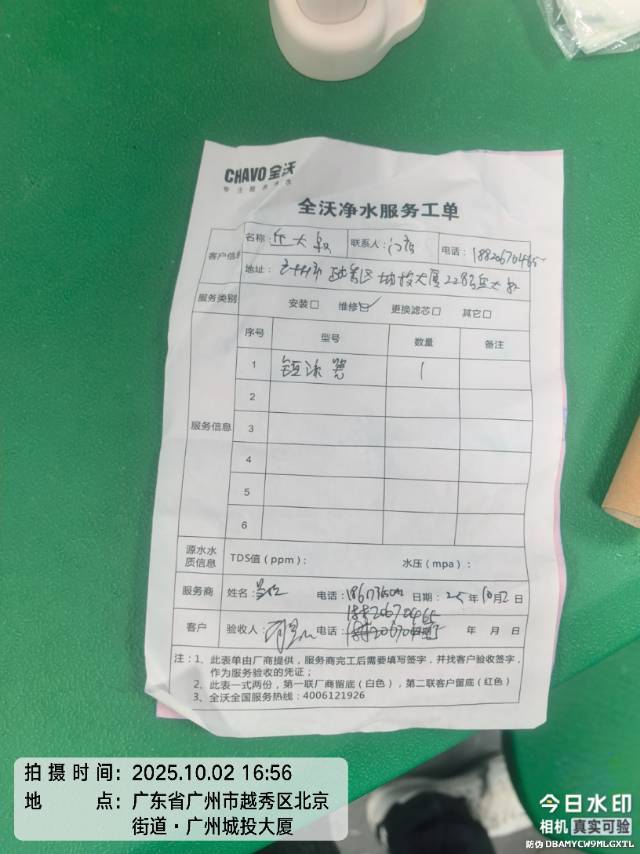 CHAVO 全沃
全沃净水服务工单
客户信息 名称: 丘大叔 联系人: 门店 电话: 18820670465
地址: 广州市越秀区城投大厦228号丘大叔
服务类别 安装□ 维修☑ 更换滤芯□ 其它□
服务信息 序号 型号 数量 备注
1 1
2
3
4
5
6
源水水质信息 TDS值（ppm）: 水压（mpa）:
服务商 姓名: 电话: 日期: 25年10月2日
18820670465
客户 验收人: 电话: 年 月 日
注：1、此表单由厂商提供，服务商完工后需要填写签字，并找客户验收签字，
作为服务验收的凭证；
2、此表一式两份，第一联厂商留底（白色），第二联客户留底（红色）
3、全沃全国服务热线：4006121926
拍摄时间: 2025.10.02 16:56
地点: 广东省广州市越秀区北京
街道·广州城投大厦
今日水印
相机 真实可验
防伪 DBAMYCW9MLGXTL